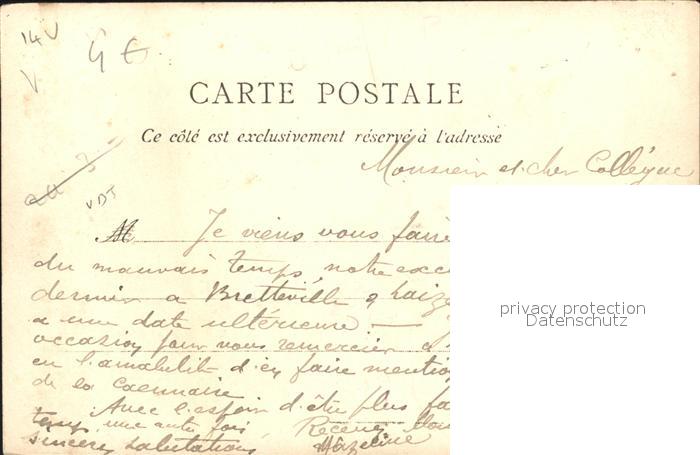 14V
4 €
V
CARTE POSTALE
Ce côté est exclusivement réservé à l'adresse
Monsieur et cher Collègue
VDJ
M Je viens vous faire
du mauvais temps, notre exc
dernier a Bretteville s Laize
a une date ultérieure —
occasion pour vous remercier
en l'amabilité d'en faire mention
de la Caennaise
Avec l'espoir d'être plus fa
temps une autre fois, Recevez
sincères salutations
privacy protection
Datenschutz